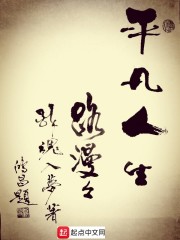 平凡人生
路漫々
魂入梦著
题
起点中文网